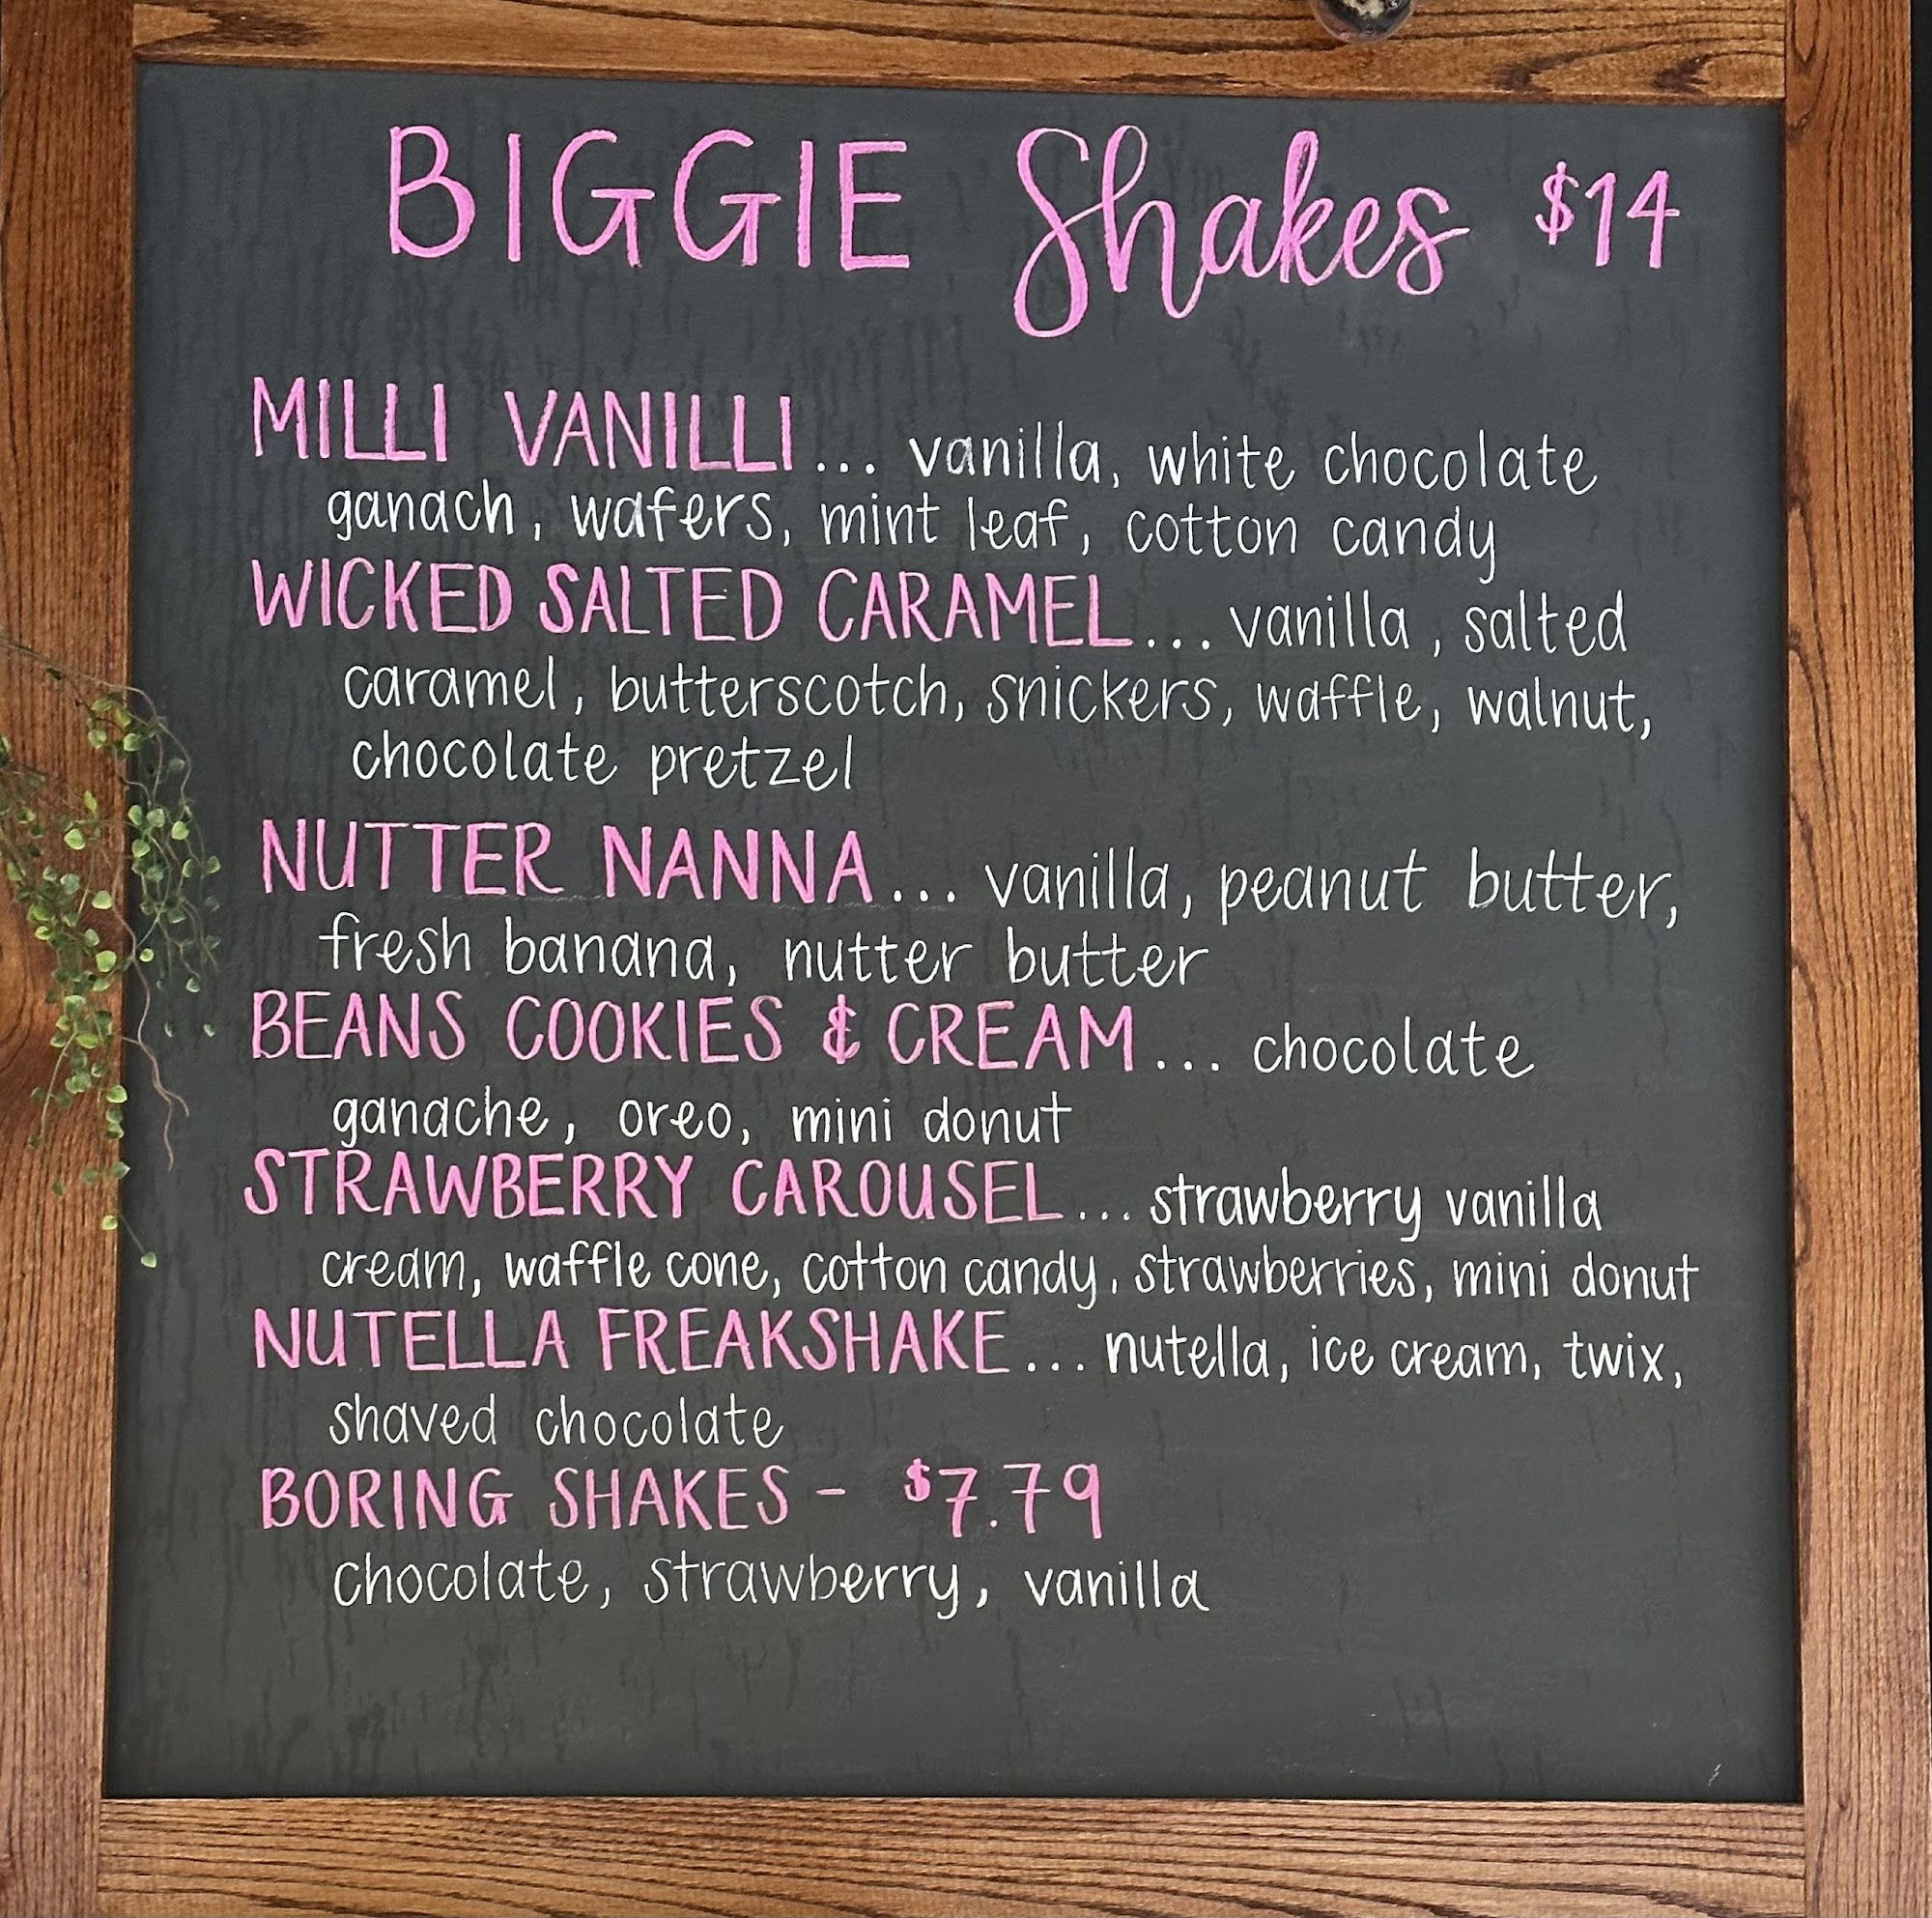 BIGGIE Shakes $14
MILLI VANILLI... vanilla, white chocolate
ganach, wafers, mint leaf, cotton candy
WICKED SALTED CARAMEL... vanilla, salted
caramel, butterscotch, snickers, waffle, walnut,
chocolate pretzel
NUTTER NANNA... vanilla, peanut butter,
fresh banana, nutter butter
BEANS COOKIES & CREAM... chocolate
ganache, oreo, mini donut
STRAWBERRY CAROUSEL... strawberry vanilla
cream, waffle cone, cotton candy, strawberries, mini donut
NUTELLA FREAKSHAKE... nutella, ice cream, twix,
shaved chocolate
BORING SHAKES - $7.79
chocolate, strawberry, vanilla